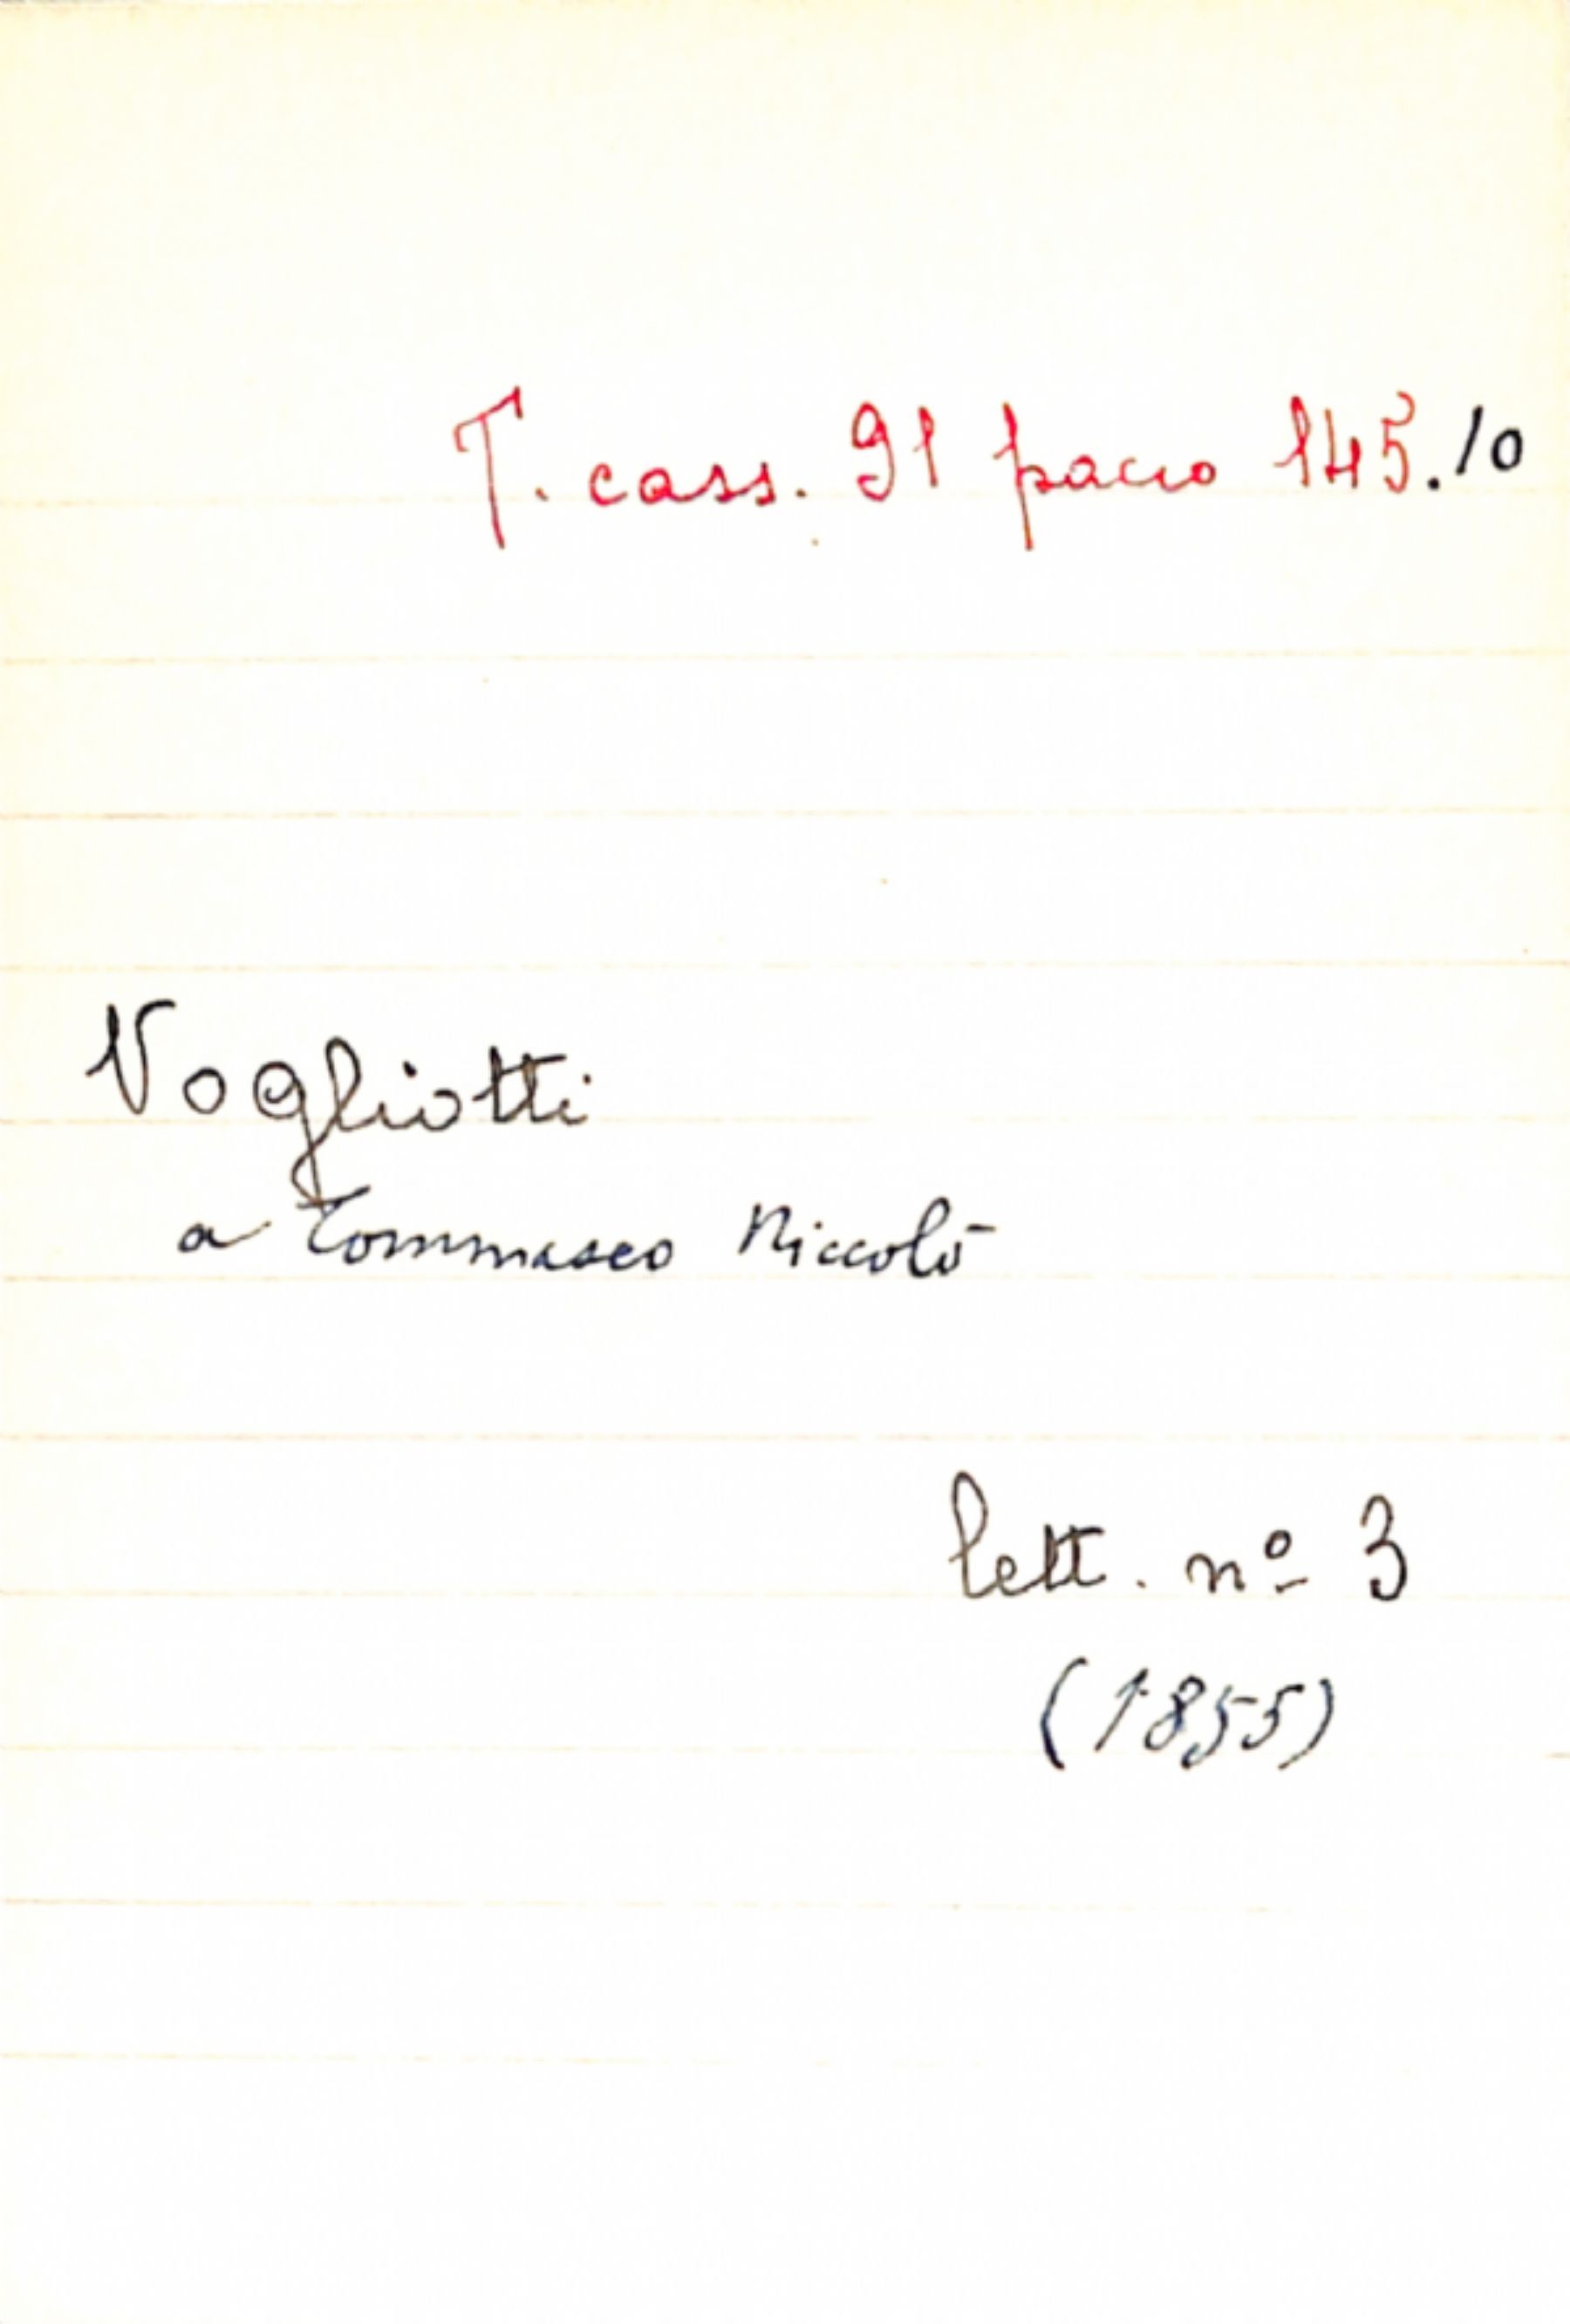 T. cass. 91 pacco 145.10
Vogliotti
a Tommaseo Niccolò
lett. nº 3
(1855)